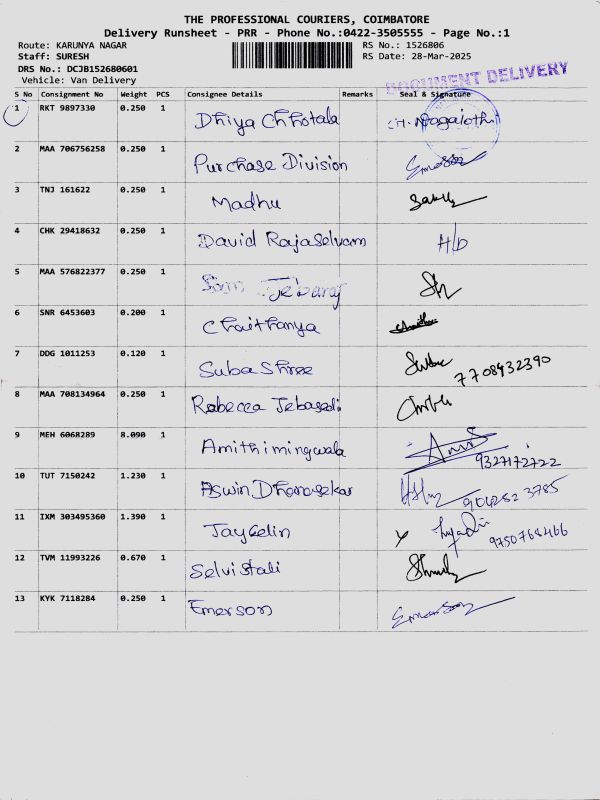 THE PROFESSIONAL COURIERS, COIMBATORE
Delivery Runsheet - PRR - Phone No.:0422-3505555 - Page No.:1
Route: KARUNYA NAGAR RS No.: 1526806
Staff: SURESH RS Date: 28-Mar-2025
DRS No.: DCJB152680601
Vehicle: Van Delivery
DOCUMENT DELIVERY
S No Consignment No Weight PCS Consignee Details Remarks Seal & Signature
1 RKT 9897330 0.250 1 Dhiya Chhotala
2 MAA 706756258 0.250 1 Purchase Division Emerson
3 TNJ 161622 0.250 1 Madhu
4 CHK 29418632 0.250 1 David Rajaselvam
5 MAA 576822377 0.250 1 Jebaraj
6 SNR 6453603 0.200 1 Chaithanya
7 DDG 1011253 0.120 1 Suba Shree 7708932390
8 MAA 708134964 0.250 1 Rebecca
9 MEH 6068289 8.090 1 Amithimingwala 9327172722
10 TUT 7150242 1.230 1 Aswin Dhanasekar
11 IXM 303495360 1.390 1 Jaycelin 9750768466
12 TVM 11993226 0.670 1
13 KYK 7118284 0.250 1 Emerson Emerson